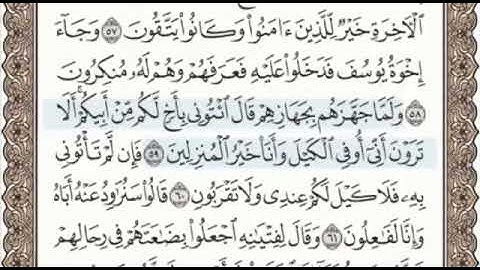 ٱلْأٓخِرَةِ خَيْرٌ لِّلَّذِينَ ءَامَنُوا۟ وَكَانُوا۟ يَتَّقُونَ ٥٧ وَجَآءَ
إِخْوَةُ يُوسُفَ فَدَخَلُوا۟ عَلَيْهِ فَعَرَفَهُمْ وَهُمْ لَهُۥ مُنكِرُونَ
٥٨ وَلَمَّا جَهَّزَهُم بِجَهَازِهِمْ قَالَ ٱئْتُونِى بِأَخٍ لَّكُم مِّنْ أَبِيكُمْ ۚ أَلَا
تَرَوْنَ أَنِّىٓ أُوفِى ٱلْكَيْلَ وَأَنَا۠ خَيْرُ ٱلْمُنزِلِينَ ٥٩ فَإِن لَّمْ تَأْتُونِى
بِهِۦ فَلَا كَيْلَ لَكُمْ عِندِى وَلَا تَقْرَبُونِ ٦٠ قَالُوا۟ سَنُرَٰوِدُ عَنْهُ أَبَاهُ
وَإِنَّا لَفَٰعِلُونَ ٦١ وَقَالَ لِفِتْيَٰنِهِ ٱجْعَلُوا۟ بِضَٰعَتَهُمْ فِى رِحَالِهِمْ